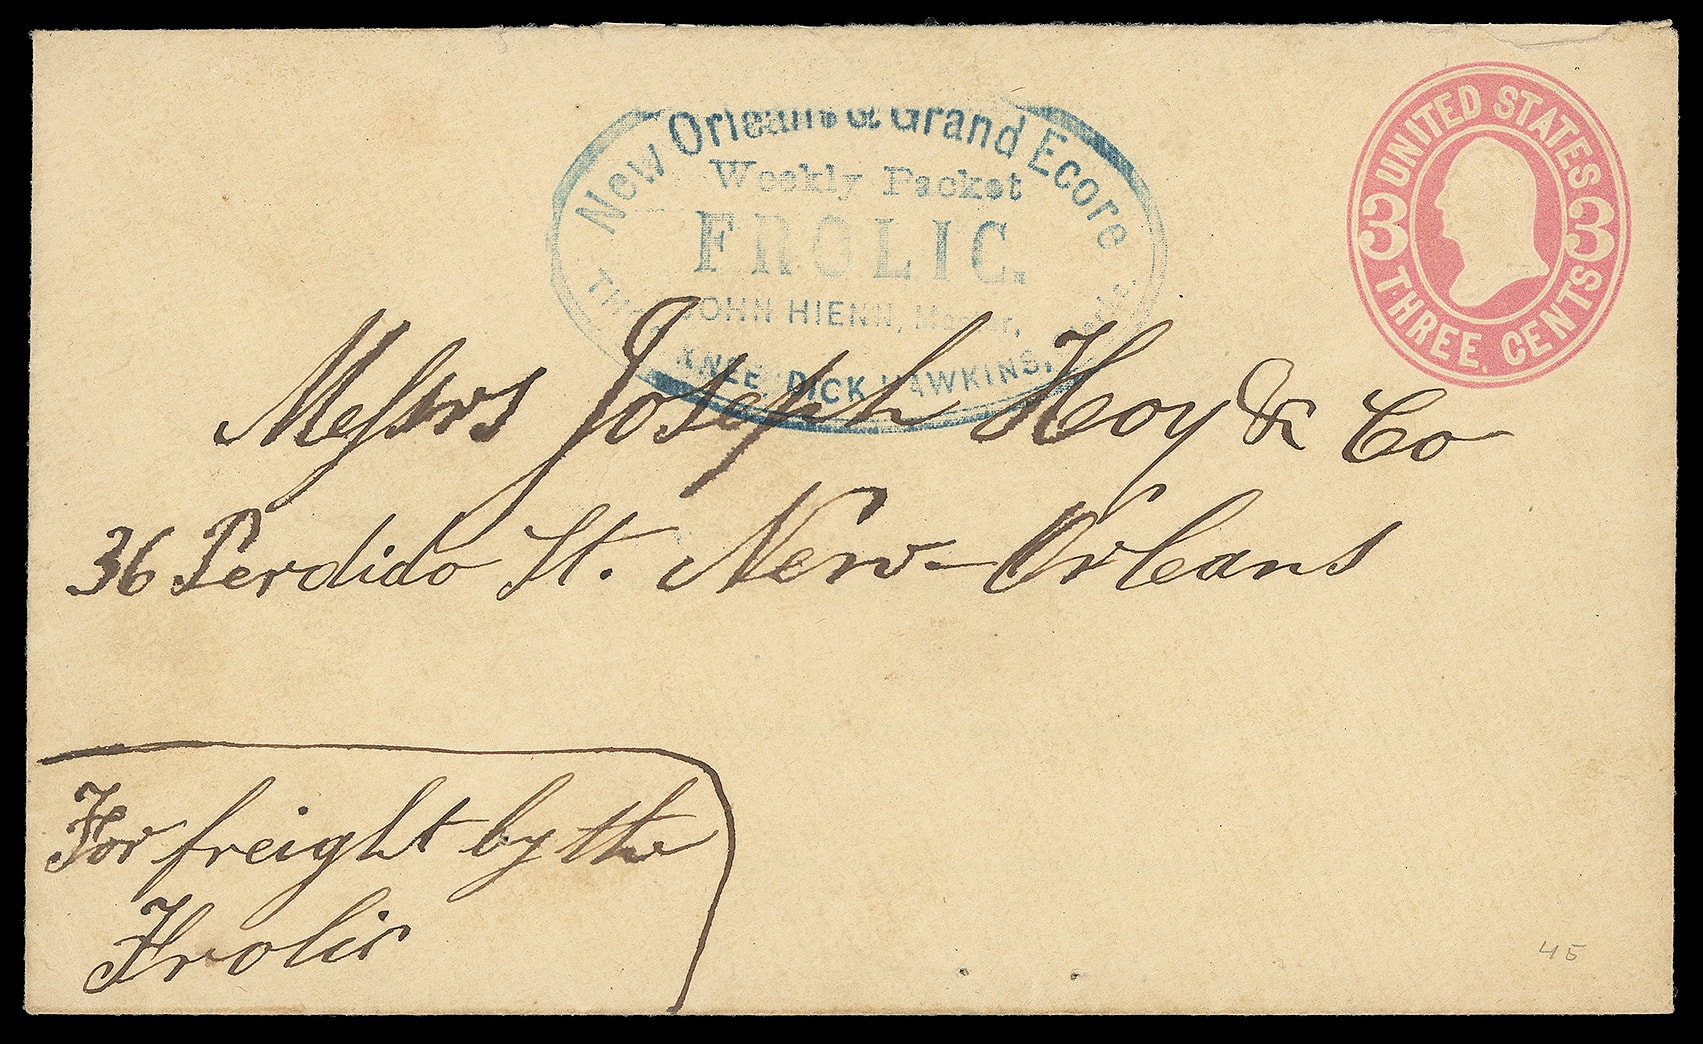 New Orleans & Grand Ecore
Weekly Packet
FROLIC.
JOHN HIENN,
DICK HAWKINS,
UNITED STATES
3 3
THREE CENTS
Messrs Joseph Hoy & Co
36 Perdido St. New-Orleans
For freight by the
Frolic
45